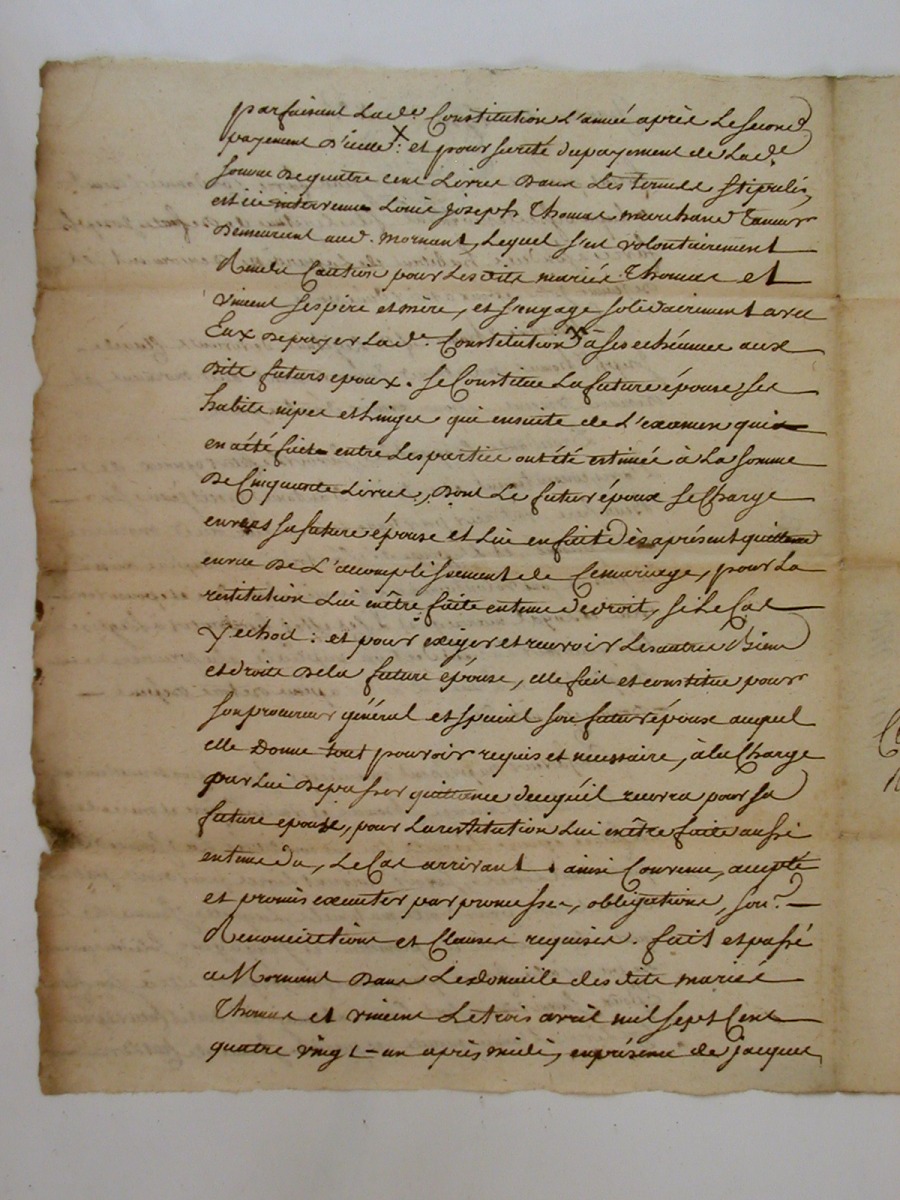 parfaisant lad.e Constitution l'année après le second
payement d'icelle X : et pour sureté du payement de lad.e
somme de quatre cent livres dans les termes stipulés,
est icy intervenu Louis joseph Thomas marchand Taneur
demeurant aud. mornant, lequel s'est volontairement
Rendu Caution pour lesdits mariés Thomas et
vincent ses père et mère, et s'engage solidairement avec
Eux de payer lad.e Constitution X à ses echéances aux
dits futurs epoux. se Constitue la future épouse ses
habits nipes et linges qui ensuite de l'examen qui
en a été fait entre les parties ont été estimés à la somme
de Cinquante livres, dont le futur époux se Charge
envers sa future épouse et lui en fait dès aprésent quittance
en vue de l'acomplissement de Ce mariage, pour la
restitution lui en être faite en tems de droit, si le Cas
y echoit : et pour exiger et recevoir les autres Biens
et droits de la future épouse, elle fait et constitue pour
son procureur général et spécial son futur époux auquel
elle donne tout pouvoir requis et necessaire, à la Charge
par lui de passer quittance de ce qu'il recevra pour sa
future epouse, pour la restitution lui en être faite aussi
en tems du, le Cas arrivant. ainsi Convenu, accepté
et promis executer par promesses, obligations, sou.?
Renonciations et Clauses requises. fait et passé
a Mornant dans le domicile desdits mariés
Thomas et vincent le trois avril mil sept Cent
quatre vingt-un après midi, en présence de jacques